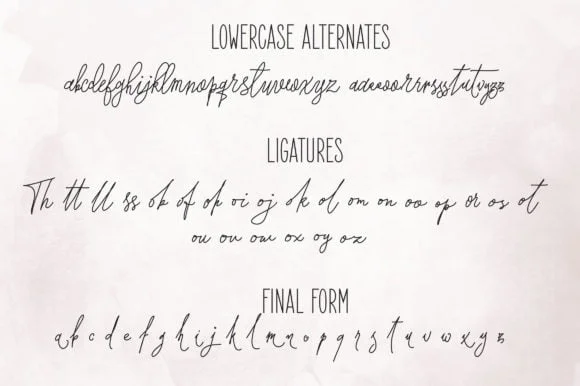 LOWERCASE ALTERNATES
abcdefghijklmnopqrstuvwxyz
LIGATURES
Th tt ll ss ob of oh oi oj ok ol om on oo op or os ot
ou ov ow ox oy oz
FINAL FORM
a b c d e f g h i j k l m n o p q r s t u v w x y z